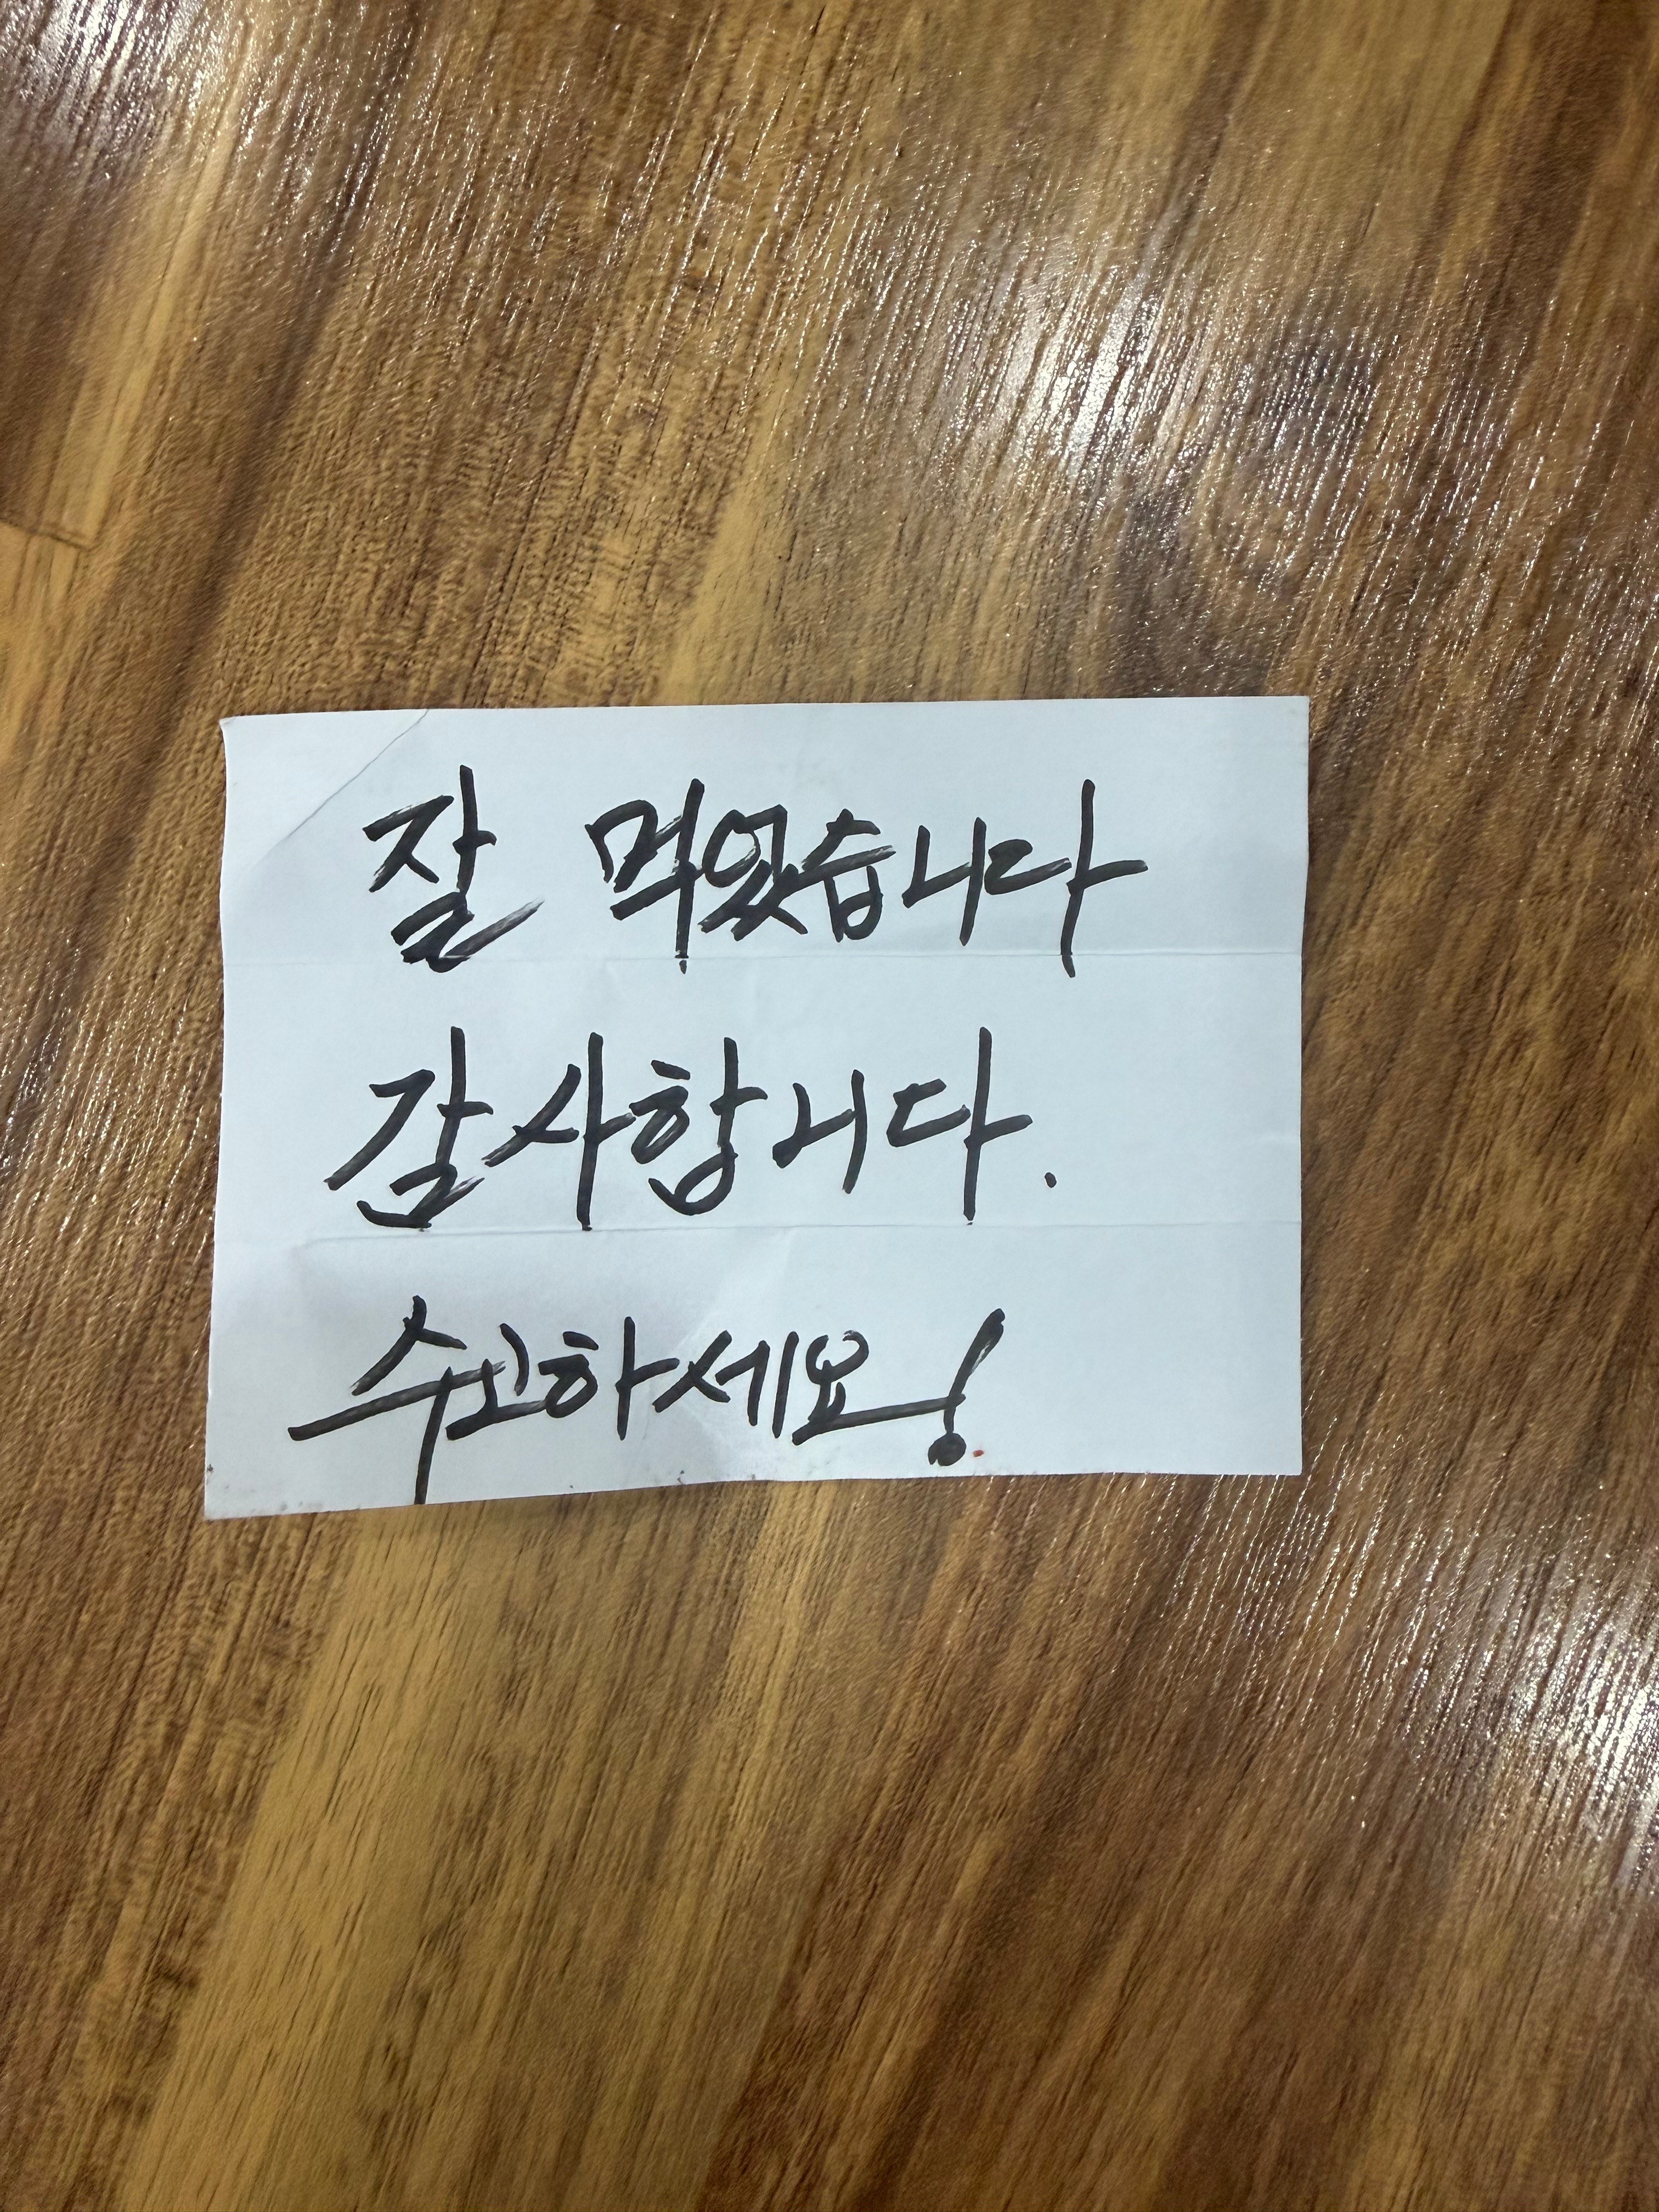 잘 먹었습니다
감사합니다.
수고하세요!